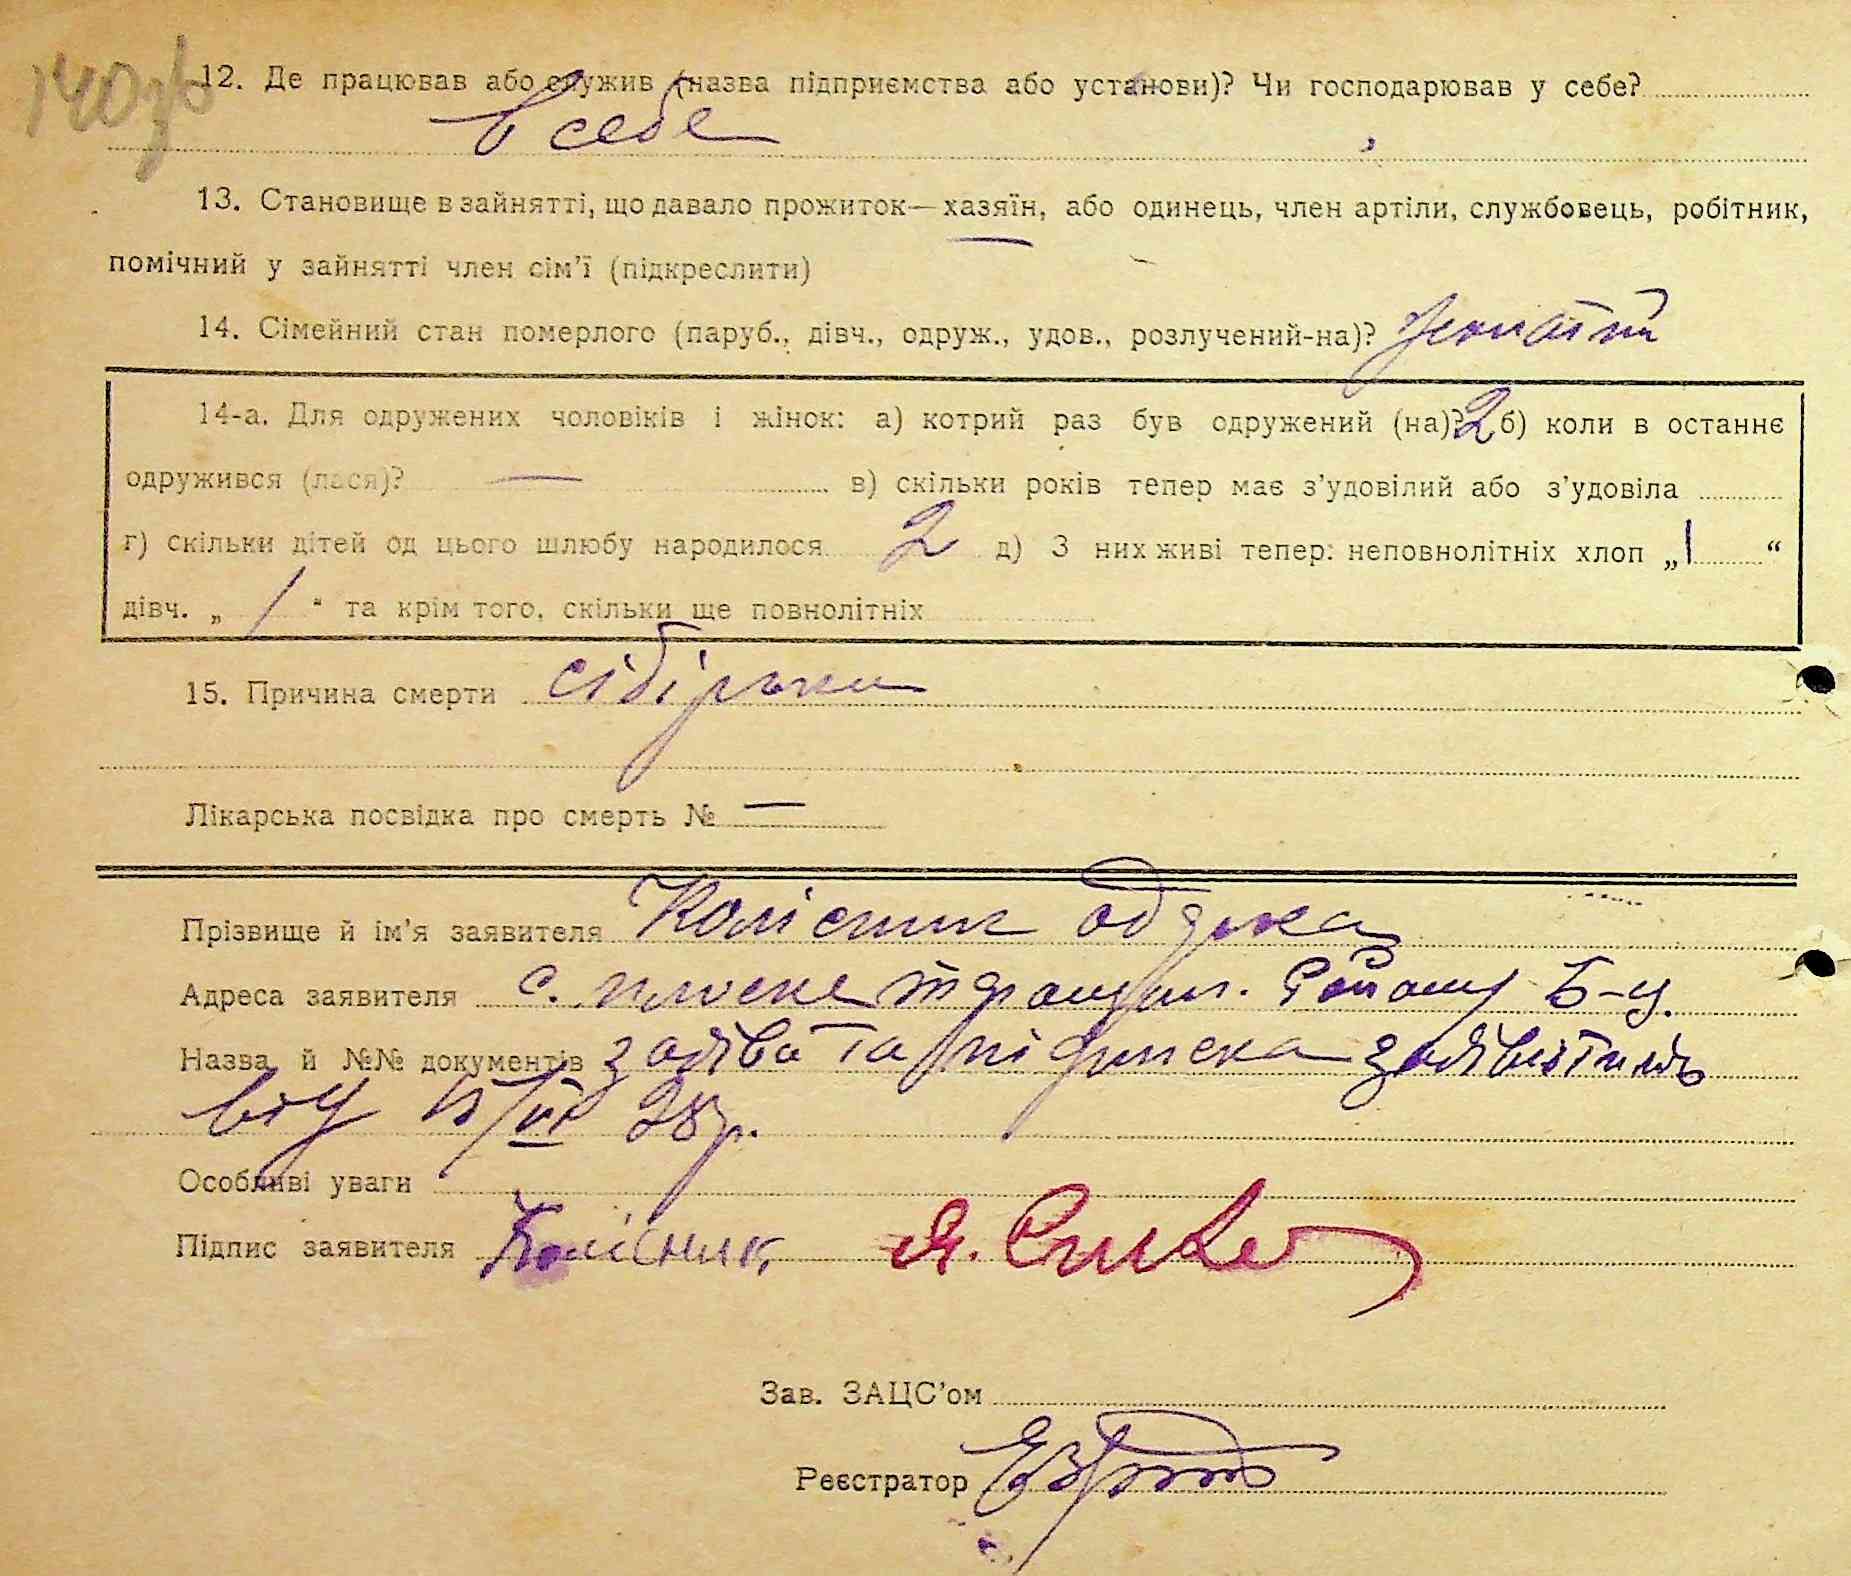 140 зв
12. Де працював або служив (назва підприємства або установи)? Чи господарював у себе?
в себе
13. Становище в зайнятті, що давало прожиток—хазяїн, або одинець, член артіли, службовець, робітник,
помічний у зайнятті член сім'ї (підкреслити)
14. Сімейний стан померлого (паруб., дівч., одруж., удов., розлучений-на)? жонатий
14-а. Для одружених чоловіків і жінок: а) котрий раз був одружений (на)? 2 б) коли в останнє
одружився (лася)? — в) скільки років тепер має з'удовілий або з'удовіла
г) скільки дітей од цього шлюбу народилося 2 д) З них живі тепер: неповнолітніх хлоп „1“
дівч. „1“ та крім того, скільки ще повнолітніх
15. Причина смерти сібірка
Лікарська посвідка про смерть № —
Прізвище й ім'я заявителя Колісник
Адреса заявителя с. Плоске Району Б-Ц.
Назва й №№ документів заява та підписка
від 28р.
Особливі уваги
Підпис заявителя Колісник
Зав. ЗАЦС'ом
Реєстратор